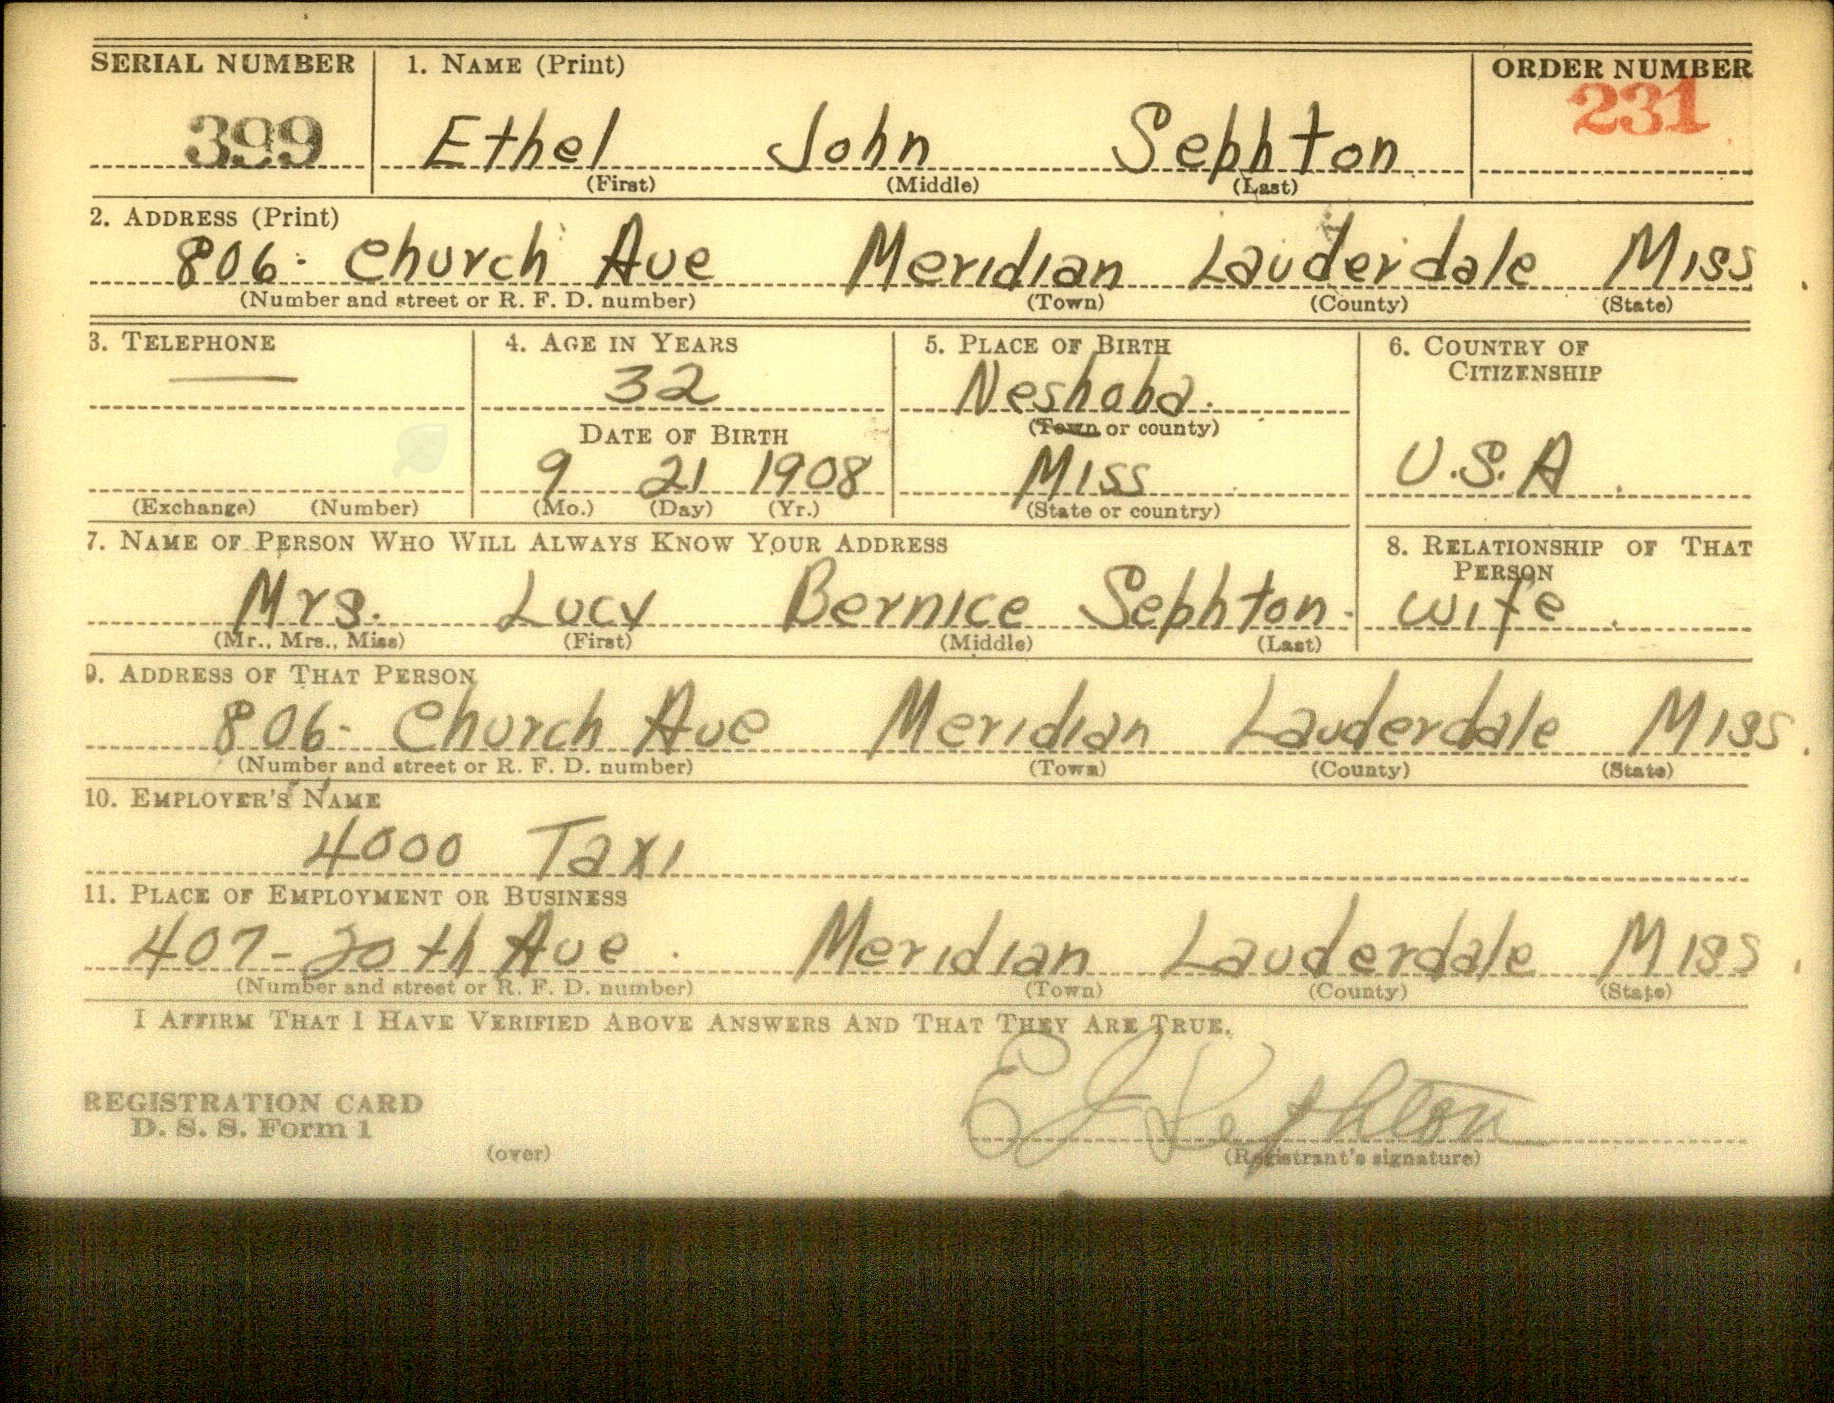 SERIAL NUMBER 1. NAME (Print) ORDER NUMBER
399 Ethel John Sephton 231
(First) (Middle) (Last)
2. ADDRESS (Print)
806- Church Ave Meridian Lauderdale Miss
(Number and street or R. F. D. number) (Town) (County) (State)
3. TELEPHONE 4. AGE IN YEARS 5. PLACE OF BIRTH 6. COUNTRY OF
CITIZENSHIP
— 32 Neshoba.
DATE OF BIRTH (Town or county)
9 21 1908 Miss U.S.A.
(Exchange) (Number) (Mo.) (Day) (Yr.) (State or country)
7. NAME OF PERSON WHO WILL ALWAYS KNOW YOUR ADDRESS 8. RELATIONSHIP OF THAT
PERSON
Mrs. Lucy Bernice Sephton. wife.
(Mr., Mrs., Miss) (First) (Middle) (Last)
9. ADDRESS OF THAT PERSON
806- Church Ave Meridian Lauderdale Miss.
(Number and street or R. F. D. number) (Town) (County) (State)
10. EMPLOYER'S NAME
4000 Taxi
11. PLACE OF EMPLOYMENT OR BUSINESS
407-20th Ave. Meridian Lauderdale Miss.
(Number and street or R. F. D. number) (Town) (County) (State)
I AFFIRM THAT I HAVE VERIFIED ABOVE ANSWERS AND THAT THEY ARE TRUE.
REGISTRATION CARD
D. S. S. Form 1 E J Sephton
(over) (Registrant's signature)